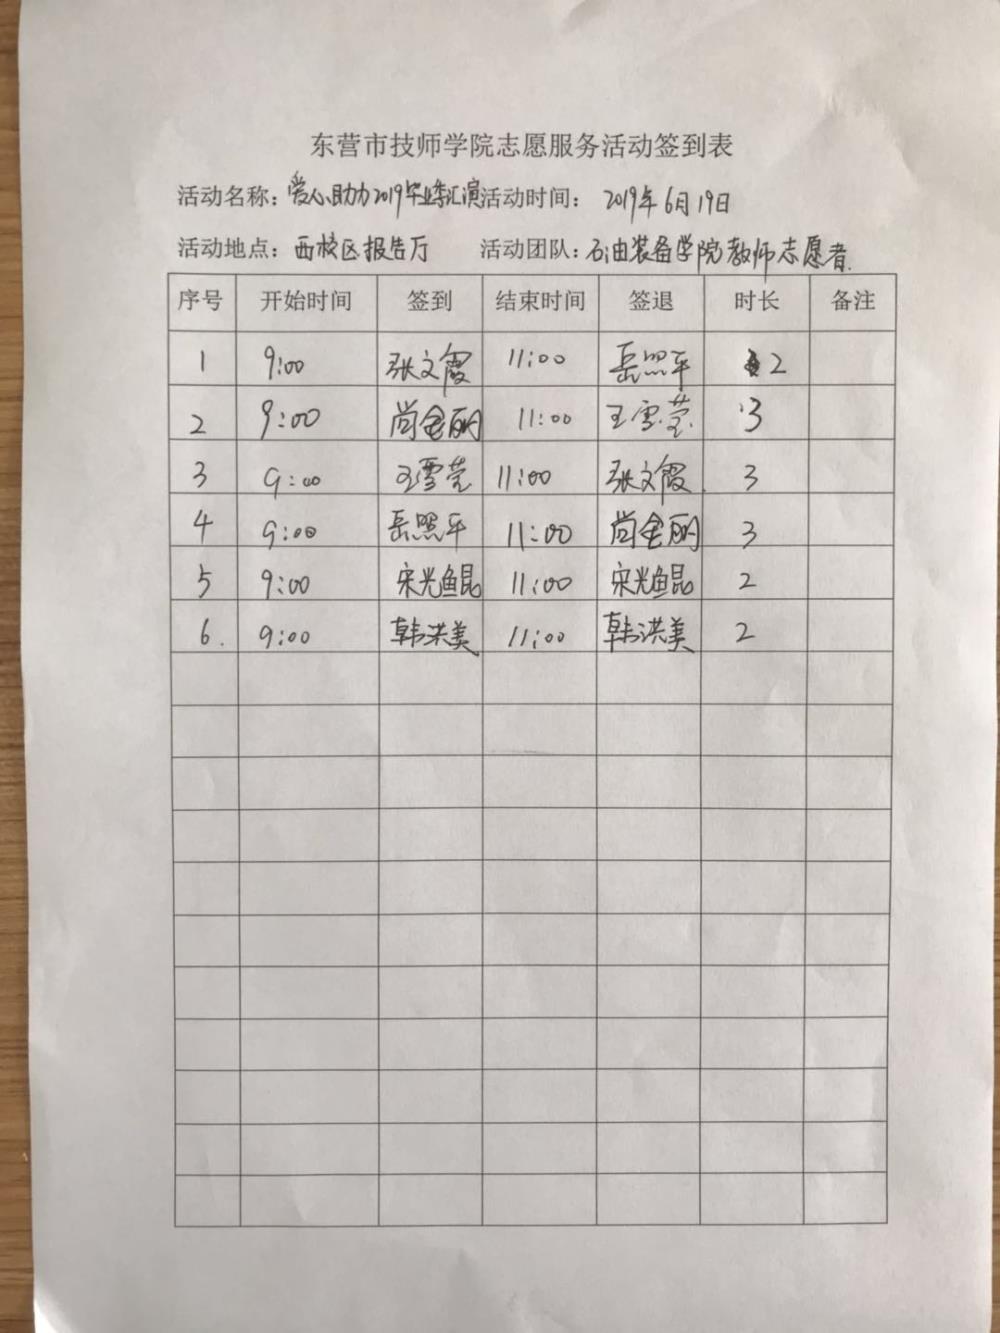 东营市技师学院志愿服务活动签到表
活动名称：爱心助力2019毕业季汇演 活动时间： 2019年6月19日
活动地点：西校区报告厅 活动团队：石油装备学院教师志愿者.
序号 开始时间 签到 结束时间 签退 时长 备注
1 9:00 张文霞 11:00 岳照平 2
2 9:00 尚金丽 11:00 王雪莹 3
3 9:00 王雪莹 11:00 张文霞. 3
4 9:00 岳照平 11:00 尚金丽 3
5 9:00 宋光鲲 11:00 宋光鲲 2
6. 9:00 韩洪美 11:00 韩洪美 2